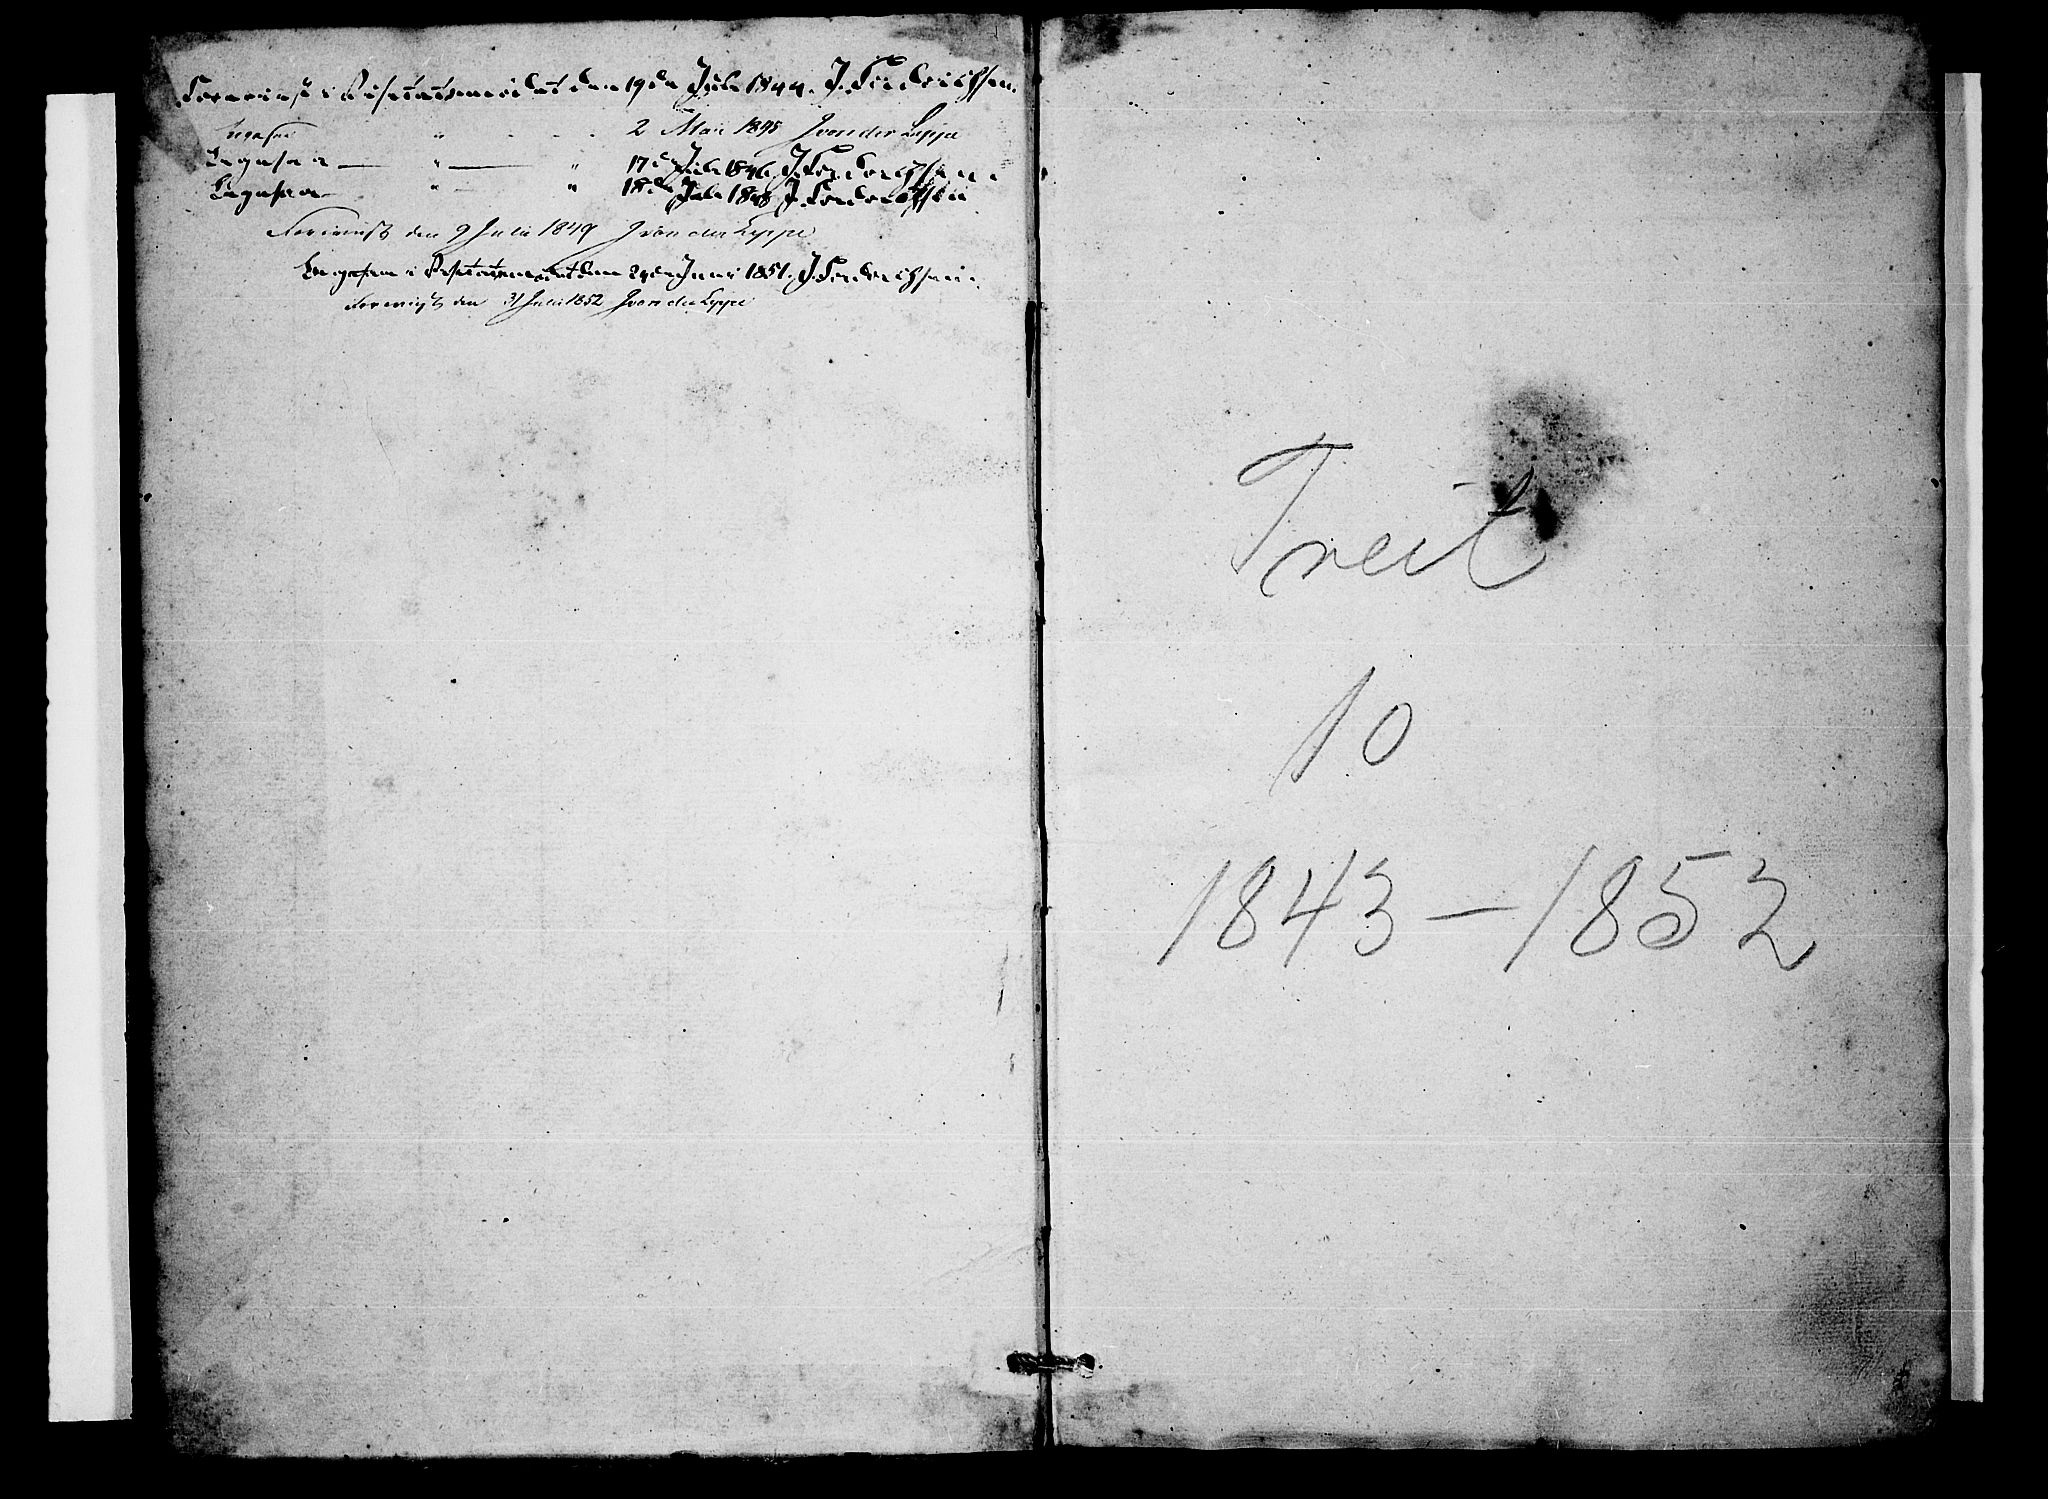 Foreviist i Visitatsmødet den 19de Juli 1844. J. Friderichsen.
Ligesaa " " 2 Mai 1845 J von der Lippe
Ligesaa — " — " 17de Juli 1846 J. Friderichsen.
Ligesaa " — " 18de Juli 1848 J. Friderichsen
Foreviist den 9 Juli 1849 J von der Lippe
Ligesaa i Visitatsmødet den 24de Juni 1851. J. Friderichsen.
Foreviist den 31 Juli 1852 J von der Lippe
Treit
10
1843 — 1852